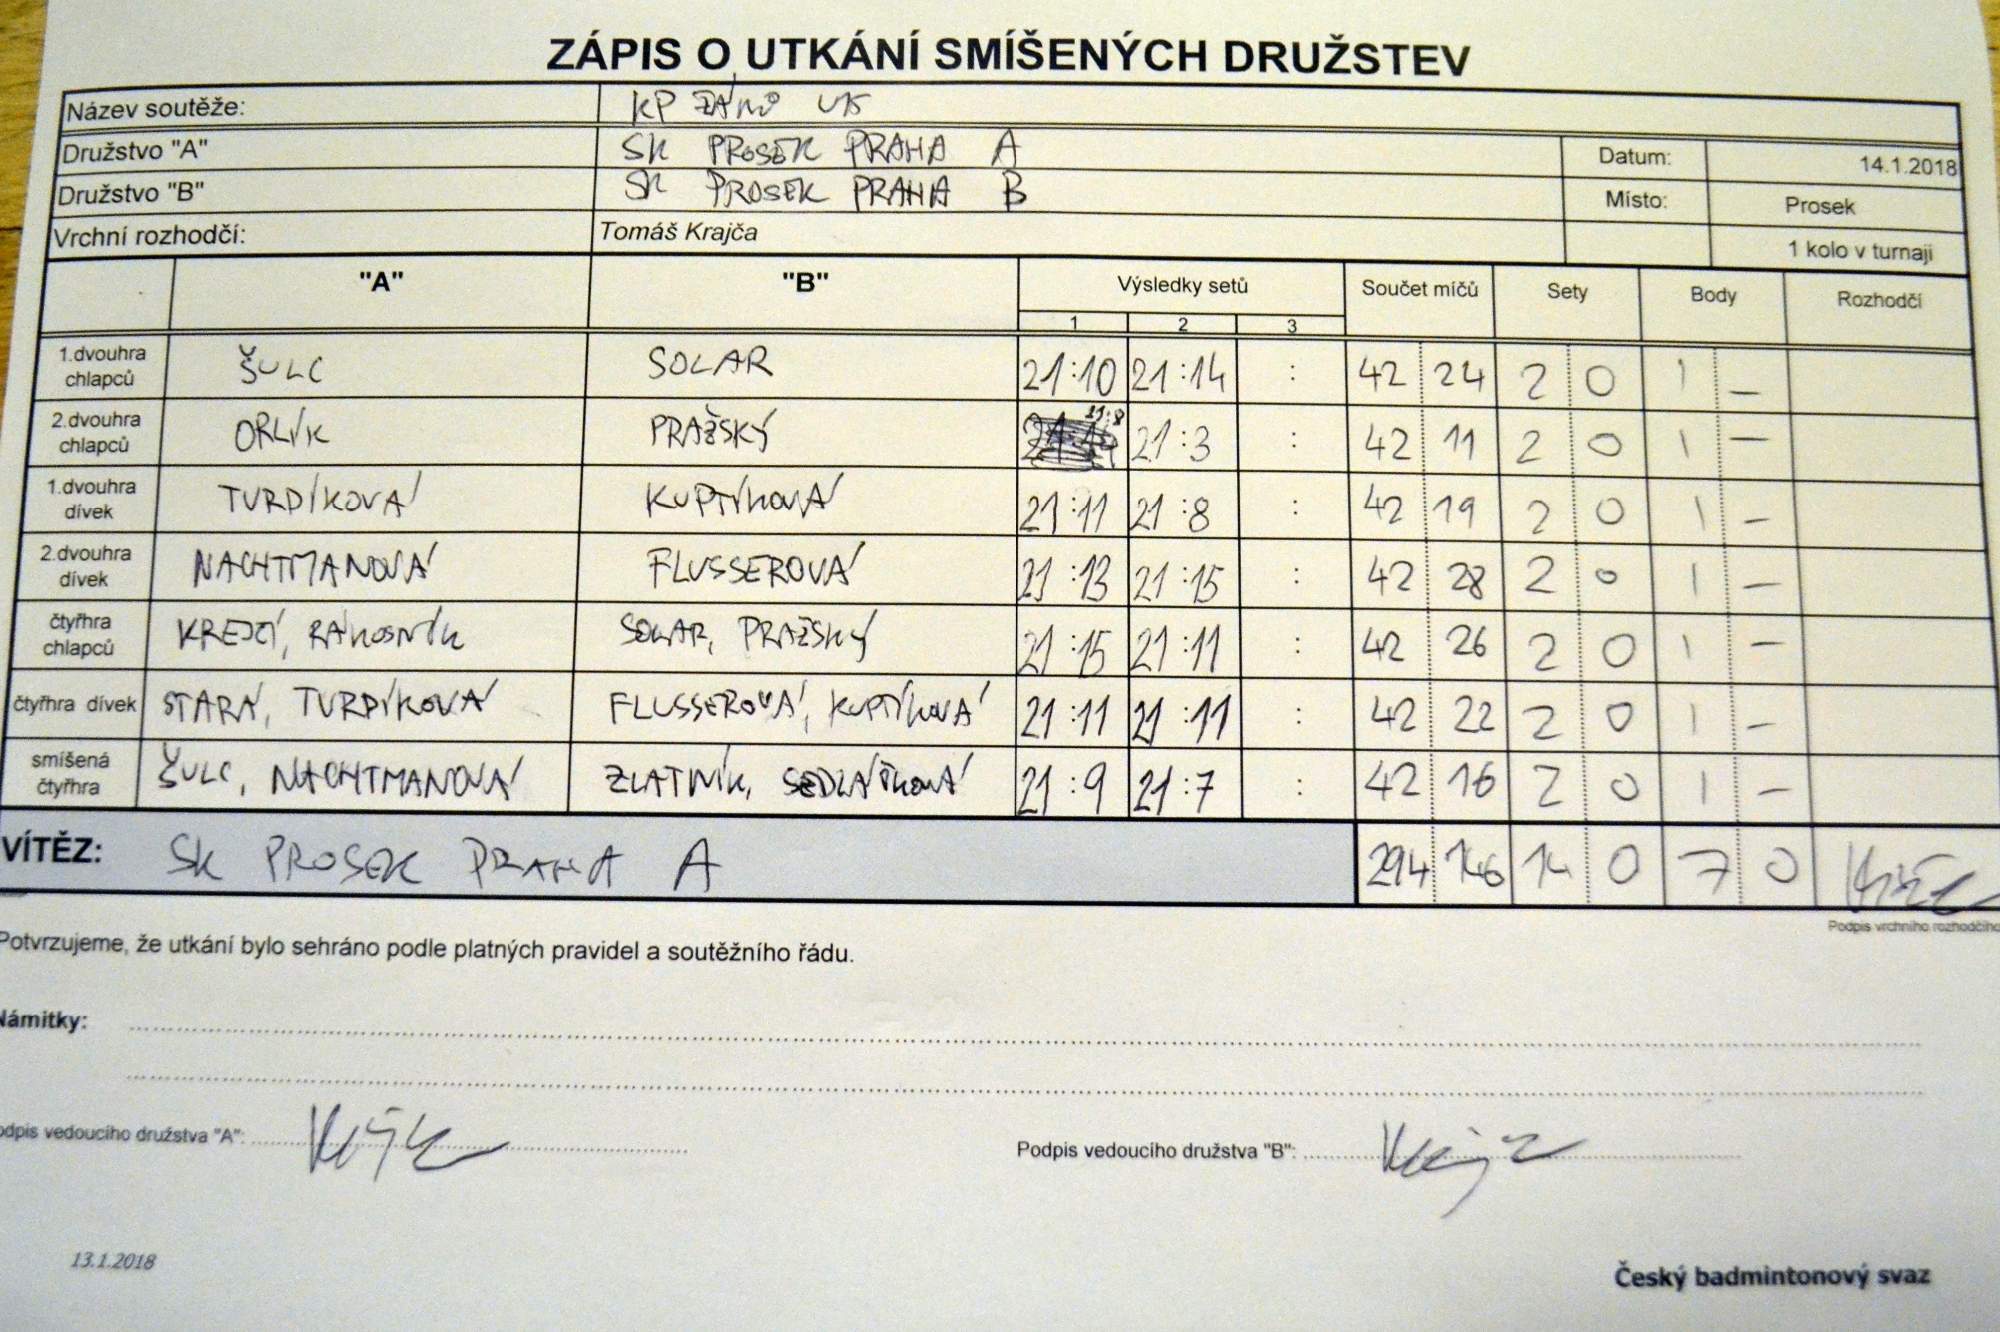 ZÁPIS O UTKÁNÍ SMÍŠENÝCH DRUŽSTEV
Název soutěže: KP ŽÁKŮ U15
Družstvo "A" SK PROSEK PRAHA A Datum: 14.1.2018
Družstvo "B" SK PROSEK PRAHA B Místo: Prosek
Vrchní rozhodčí: Tomáš Krajča 1 kolo v turnaji
"A" "B" Výsledky setů Součet míčů Sety Body Rozhodčí
1 2 3
1.dvouhra chlapců ŠULC SOLAR 21:10 21:14 : 42 24 2 0 1 –
2.dvouhra chlapců ORLÍK PRAŽSKÝ 21:8 21:3 : 42 11 2 0 1 –
1.dvouhra dívek TURDÍKOVÁ KUPTÍKOVÁ 21:11 21:8 : 42 19 2 0 1 –
2.dvouhra dívek NACHTMANOVÁ FLUSSEROVÁ 21:13 21:15 : 42 28 2 0 1 –
čtyřhra chlapců KREJČÍ, RÁKOSNÍK SOLAR, PRAŽSKÝ 21:15 21:11 : 42 26 2 0 1 –
čtyřhra dívek STARÁ, TURDÍKOVÁ FLUSSEROVÁ, KUPTÍKOVÁ 21:11 21:11 : 42 22 2 0 1 –
smíšená čtyřhra ŠULC, NACHTMANOVÁ ZLATNÍK, SEDLÁČKOVÁ 21:9 21:7 : 42 16 2 0 1 –
VÍTĚZ: SK PROSEK PRAHA A 294 146 14 0 7 0
Podpis vrchního rozhodčího
Potvrzujeme, že utkání bylo sehráno podle platných pravidel a soutěžního řádu.
Námitky:
odpis vedoucího družstva "A": Podpis vedoucího družstva "B":
13.1.2018 Český badmintonový svaz